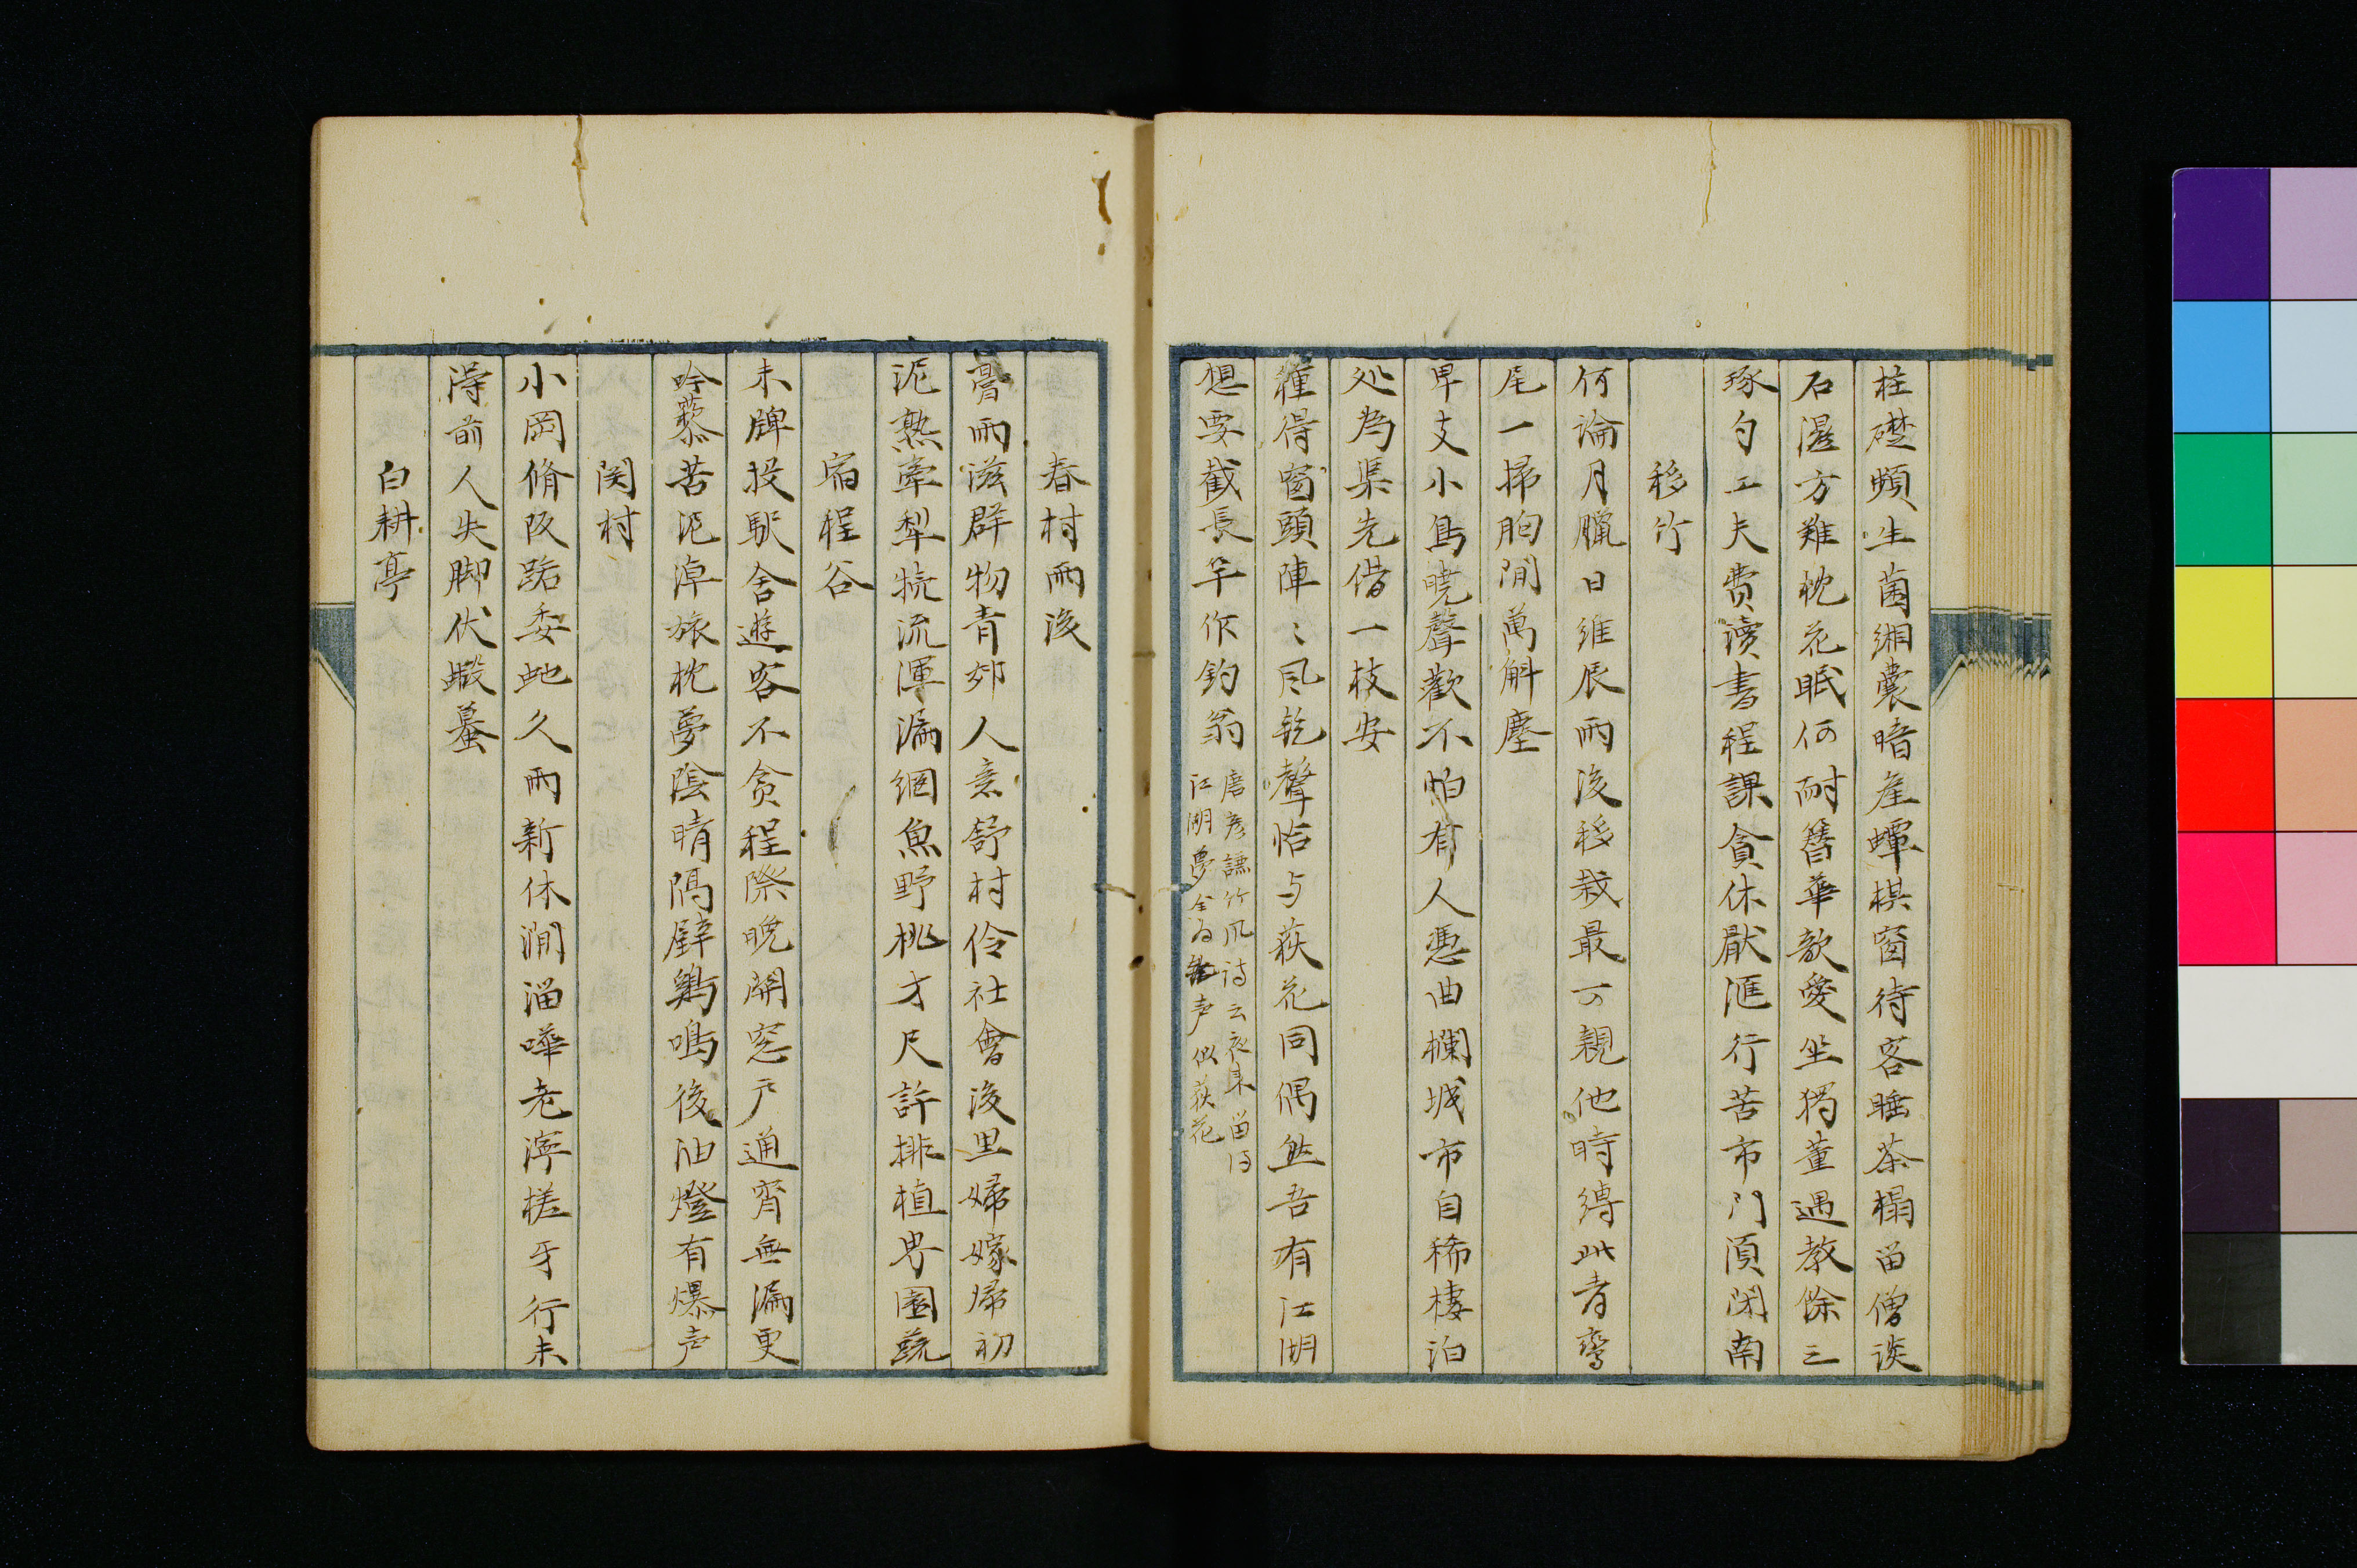 柱礎頻生菌緗囊暗產蟫棋窗待客睡茶榻留僧談
石溼方難枕花眠何耐簪華歆愛坐獨董遇教餘三
琢句工夫費瀆書程課貪休厭滙行苦市門須閉南
移竹
何論月臘日維辰雨後移栽最可親他時縛此青鸞
尾一掃胸間萬斛塵
早支小鳥曉聲歡不怕有人憑曲欄城市自稀棲泊
処為渠先借一枝安
種得窗頭陣〻風乾聲恰与荻花同偶然吾有江湖
想要截長竿作釣翁
唐彦謙竹風詩云夜来留得
江湖夢全為乾声似荻花
春村雨後
膏雨滋群物青郊人意舒村伶社會後里婦嫁歸初
泥熟牽犁犢流渾漏網魚野桃才尺許排植界園蔬
宿程谷
未牌投駅舍遊客不貪程際晚開窓戸通宵無漏更
吟藜苦泥淖旅枕夢陰晴隔壁鷄鳴後油燈有爆声
関村
小岡脩阪路委蛇久雨新休澗溜嘩老濘槎牙行未
得前人失脚伏蝦蟇
白耕亭